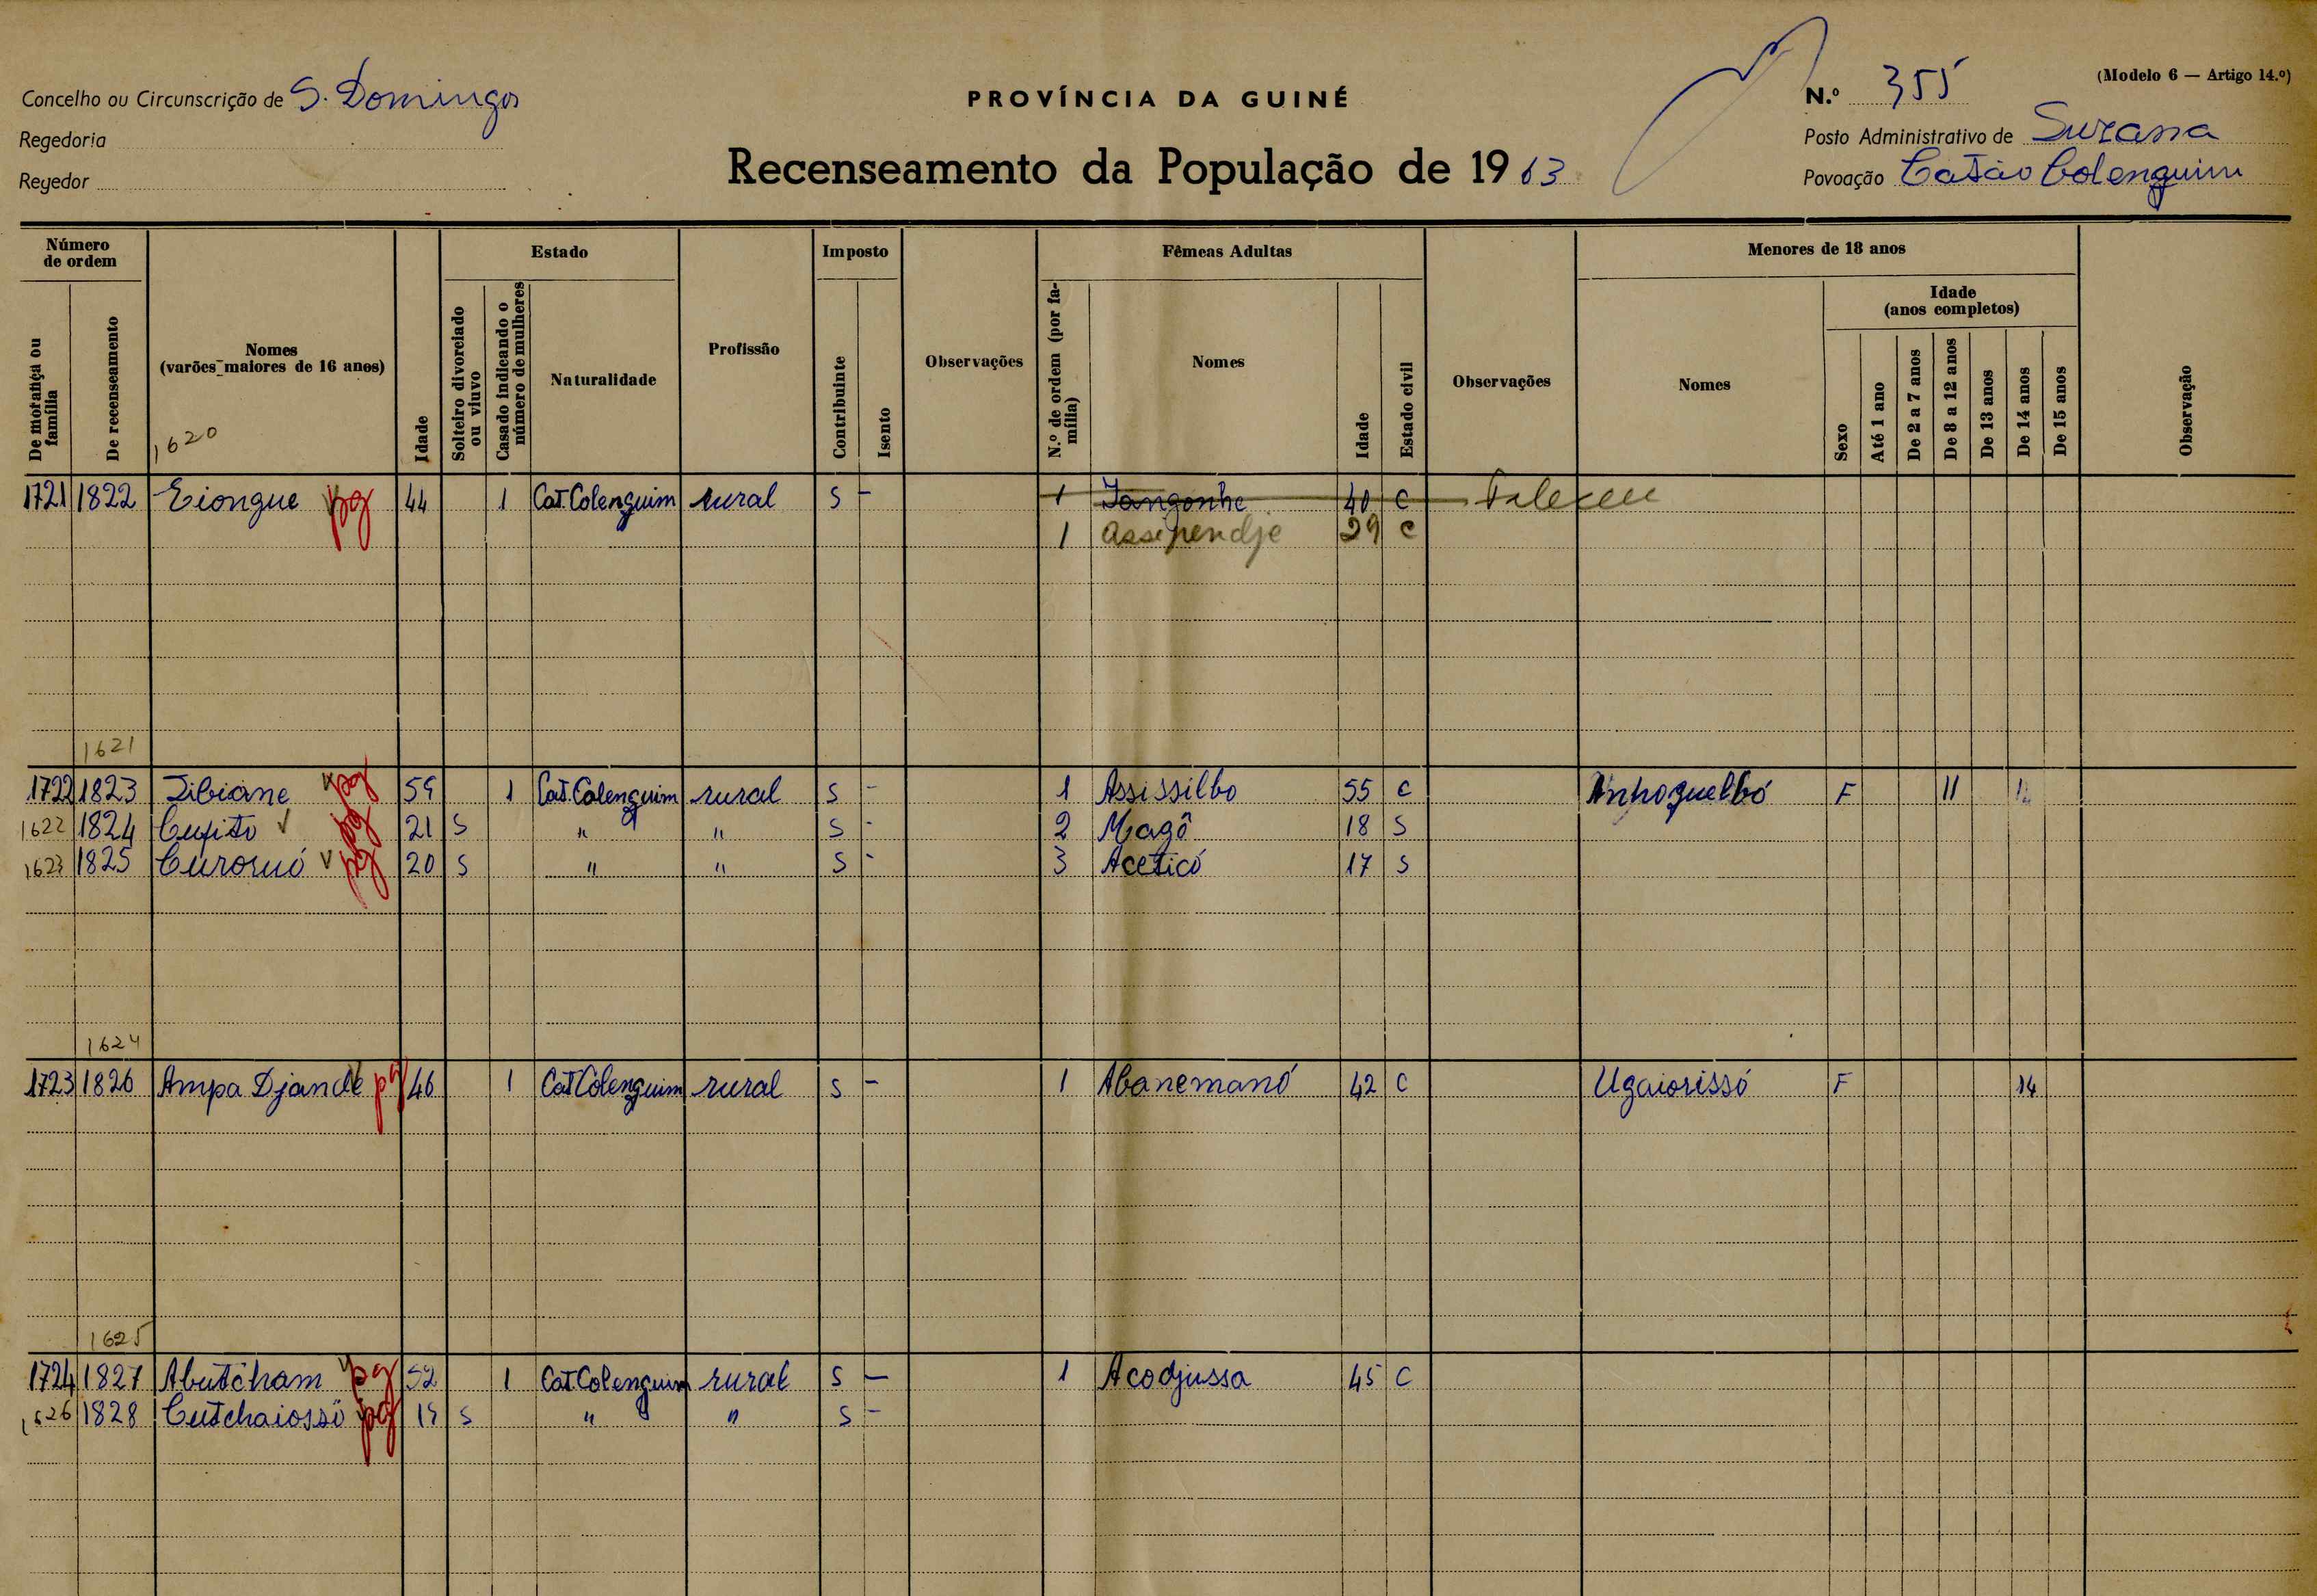 (Modelo 6 — Artigo 14.º)
Concelho ou Circunscrição de S. Domingos
PROVÍNCIA DA GUINÉ
N.º 355
Regedoria
Posto Administrativo de Suzana
Regedor
Recenseamento da População de 1963
Povoação Catão Colenguim
Número de ordem
Estado
Imposto
Fêmeas Adultas
Menores de 18 anos
De motança ou família
De recenseamento
Nomes
(varões maiores de 16 anos)
1620
Idade
Solteiro divorciado ou viuvo
Casado indicando o número de mulheres
Naturalidade
Profissão
Contribuinte
Isento
Observações
N.º de ordem (por família)
Nomes
Idade
Estado civil
Observações
Nomes
Sexo
Idade
(anos completos)
Até 1 ano
De 2 a 7 anos
De 8 a 12 anos
De 13 anos
De 14 anos
De 15 anos
Observação
1721 1822 Eiongue pg 44 1 Cat. Colenguim rural S - 1 Jangonhe 40 C Faleceu
1 Assependje 29 C
1621
1722 1823 Jibiane pg 59 1 Cat. Colenguim rural S - 1 Assissilbo 55 C Anhoguelbó F 11
1622 1824 Cufito pg 21 S " " S - 2 Magô 18 S
1623 1825 Curosuó pg 20 S " " S - 3 Aceticó 17 S
1624
1723 1826 Ampa Djandé pg 46 1 Cat Colenguim rural S - 1 Abanemanó 42 C Ugaiorissó F 14
1625
1724 1827 Abutcham pg 52 1 Cat. Colenguim rural S - 1 Acodjussa 45 C
1626 1828 Cutchaiossó pg 19 S " " S -